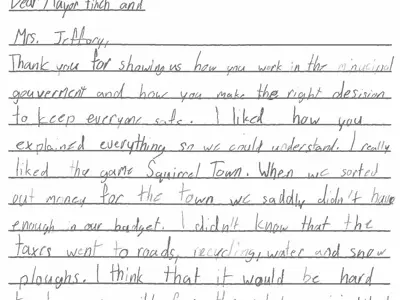 Dear Mayor Finch and
Mrs. Jeffory,
Thank you for showing us how you work in the minucipal
gouverment and how you make the right desision
to keep everyone safe. I liked how you
explained everything so we could understand. I really
liked the game Squirrel Town. When we sorted
out money for the town we saddly didn't have
enough in our budget. I didn't know that the
taxes went to roads, recycling, water and snow
ploughs. I think that it would be hard